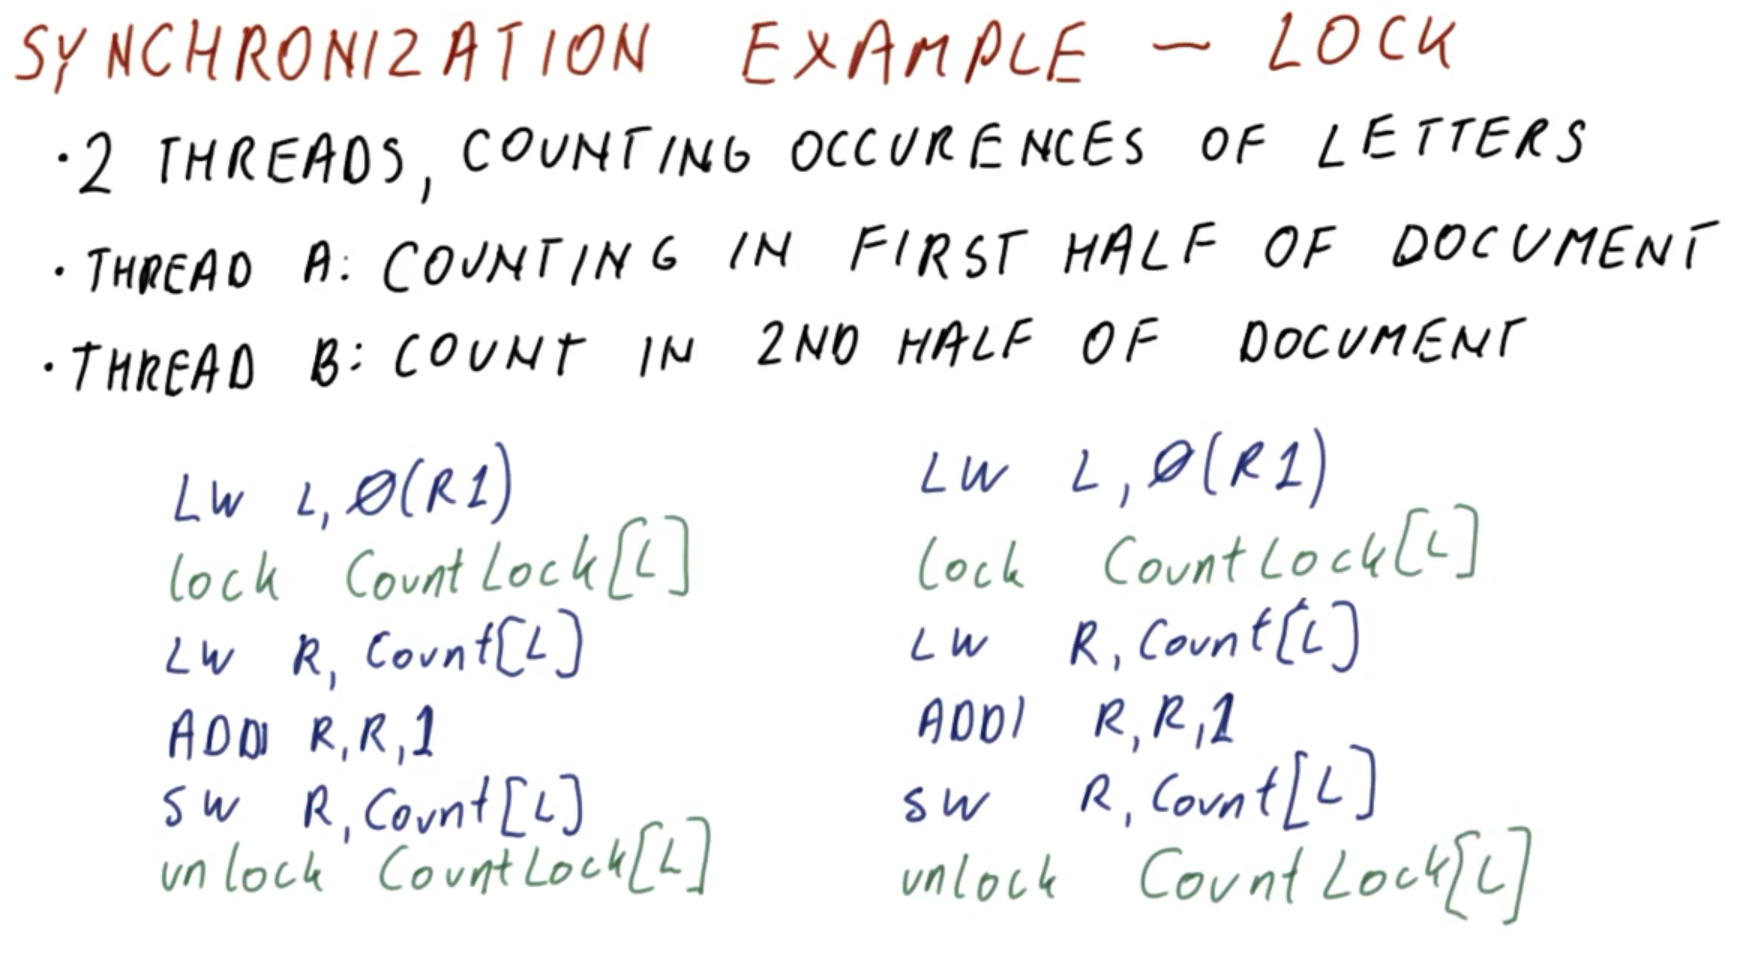 SYNCHRONIZATION EXAMPLE — LOCK
· 2 THREADS, COUNTING OCCURENCES OF LETTERS
· THREAD A: COUNTING IN FIRST HALF OF DOCUMENT
· THREAD B: COUNT IN 2ND HALF OF DOCUMENT
LW L, Ø(R1)
lock CountLock[L]
LW R, Count[L]
ADDI R, R, 1
SW R, Count[L]
unlock CountLock[L]
LW L, Ø(R1)
lock CountLock[L]
LW R, Count[L]
ADDI R, R, 1
SW R, Count[L]
unlock CountLock[L]